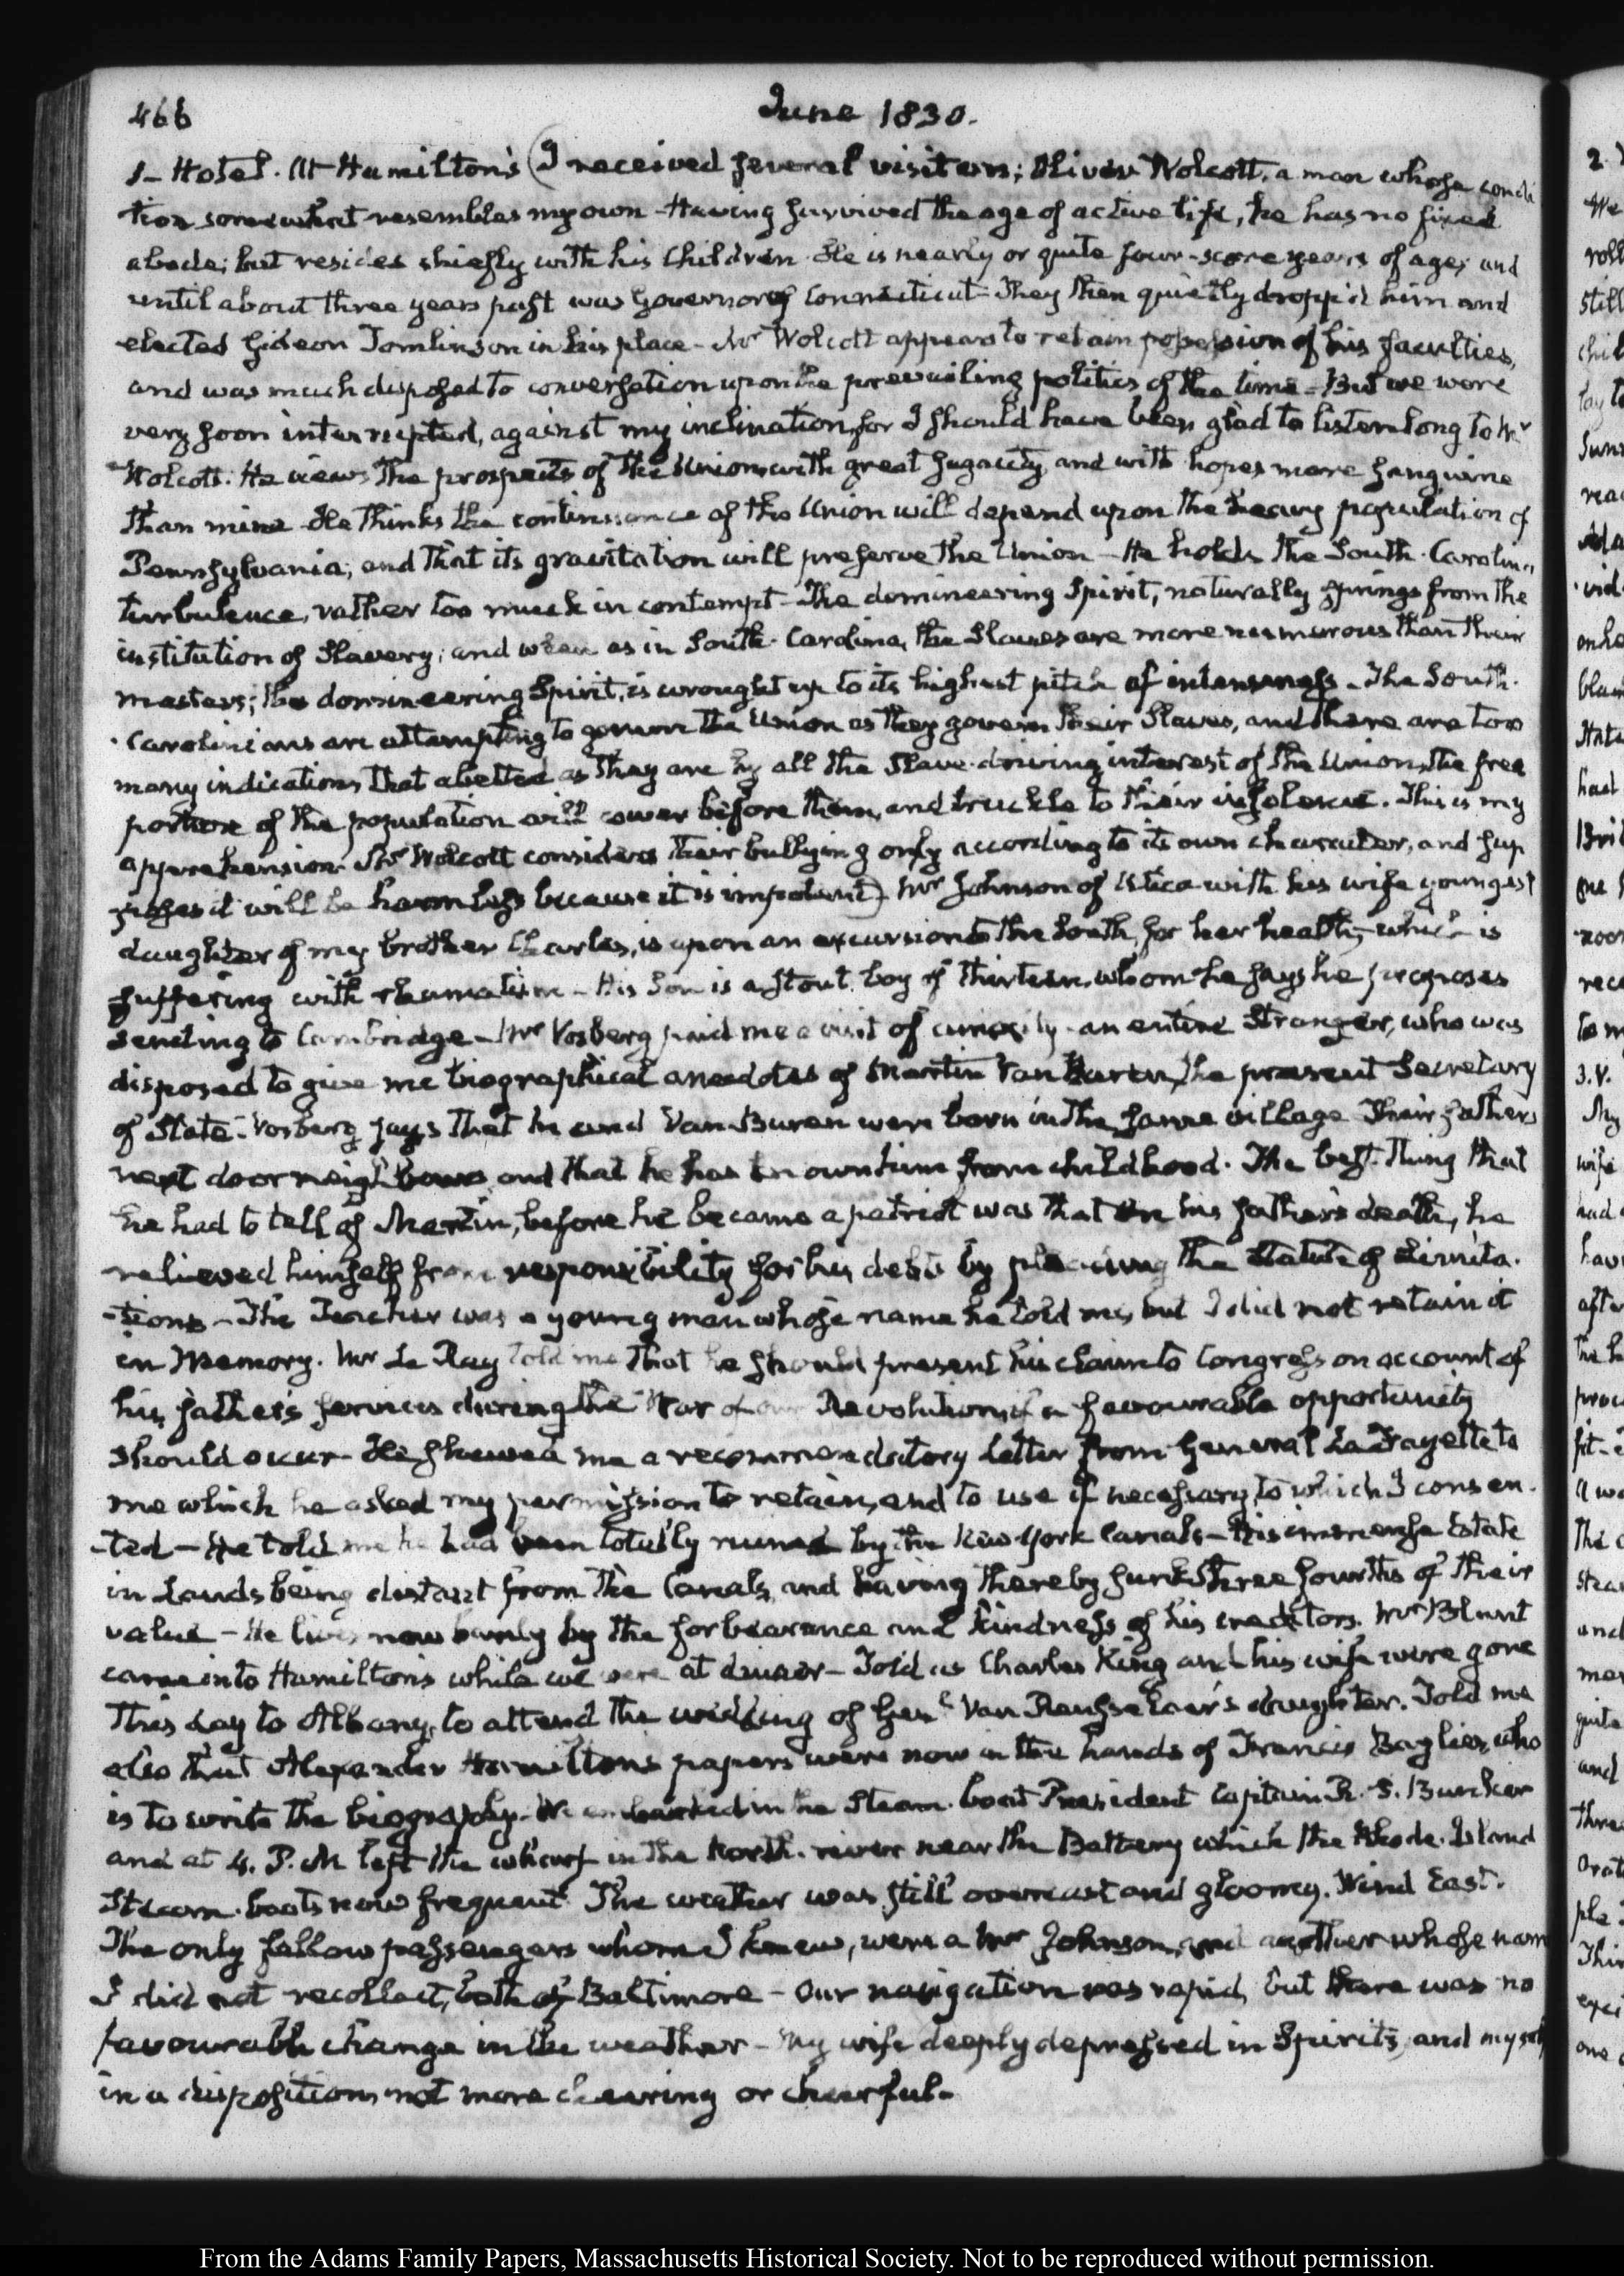 466
June 1830.
1- Hotel. At Hamilton's (I received several visitors; Oliver Wolcott, a man whose condi
tion somewhat resembles my own - Having survived the age of active life, he has no fixed
abode; but resides chiefly with his Children. He is nearly or quite four-score years of age; and
until about three years past was Governor of Connecticut - They then quietly dropp'd him and
elected Gideon Tomlinson in his place - Mr Wolcott appears to retain possession of his faculties,
and was much disposed to conversation upon the prevailing politics of the time - But we were
very soon interrupted, against my inclination, for I should have been glad to listen long to Mr
Wolcott. He views the prospects of the Union with great sagacity, and with hopes more sanguine
than mine - He thinks the continuance of the Union will depend upon the heavy population of
Pennsylvania; and that its gravitation will preserve the Union - He holds the South-Carolina
turbulence, rather too much in contempt - The domineering Spirit, naturally springs from the
institution of Slavery; and when as in South-Carolina, the Slaves are more numerous than their
masters; the domineering Spirit, is wrought up to its highest pitch of intenseness - The South-
Carolinians are attempting to govern the Union as they govern their Slaves, and there are too
many indications that abetted as they are by all the Slave-driving interest of the Union, the free
portion of the population will cower before them, and truckle to their insolence. This is my
apprehension. Mr Wolcott considers their bullying only according to its own character, and sup
poses it will be harmless because it is impotent) Mr Johnson of Utica with his wife youngest
daughter of my brother Charles, is upon an excursion to the South, for her health, which is
suffering with rheumatism - His Son is a stout boy of thirteen, whom he says he proposes
sending to Cambridge - Mr Vosberg paid me a visit of curiosity - an entire Stranger, who was
disposed to give me biographical anecdotes of Martin Van Buren, the present Secretary
of State - Vosberg says that he and Van Buren were born in the same village Their fathers
next door neighbours and that he has known him from childhood. The best thing that
he had to tell of Martin, before he became a patriot was that on his father's death, he
relieved himself from responsibility for his debts by pleading the Statute of Limita-
-tions - The Teacher was a young man whose name he told me, but I did not retain it
in Memory. Mr Le Ray told me that he should present his claim to Congress on account of
his father's services during the War of our Revolution, if a favourable opportunity
should occur - He shewed me a recommendatory Letter from General La Fayette to
me which he asked my permission to retain, and to use if necessary, to which I consen-
-ted - He told me he had been totally ruined by the New York Canals - His immense Estate
in Lands being distant from the Canals, and having thereby sunk three fourths of their
value - He lives now barely by the forbearance and kindness of his creditors. Mr Blunt
came into Hamilton's while we were at dinner - Told us Charles King and his wife were gone
this day to Albany, to attend the wedding of Genl Van Rensselaer's daughter. Told me
also that Alexander Hamilton's papers were now in the hands of Francis Baylies, who
is to write the biography. We embarked in the Steam-boat President Captain R. S. Bunker
and at 4. P.M. left the wharf in the North-river near the Battery which the Rhode-Island
Steam-boats now frequent. The weather was still overcast and gloomy. Wind East.
The only fellow passengers whom I knew, were a Mr Johnson, and another whose name
I did not recollect, both of Baltimore - Our navigation was rapid, but there was no
favourable change in the weather - My wife deeply depressed in Spirits, and myself
in a disposition not more cheering or cheerful.
From the Adams Family Papers, Massachusetts Historical Society. Not to be reproduced without permission.